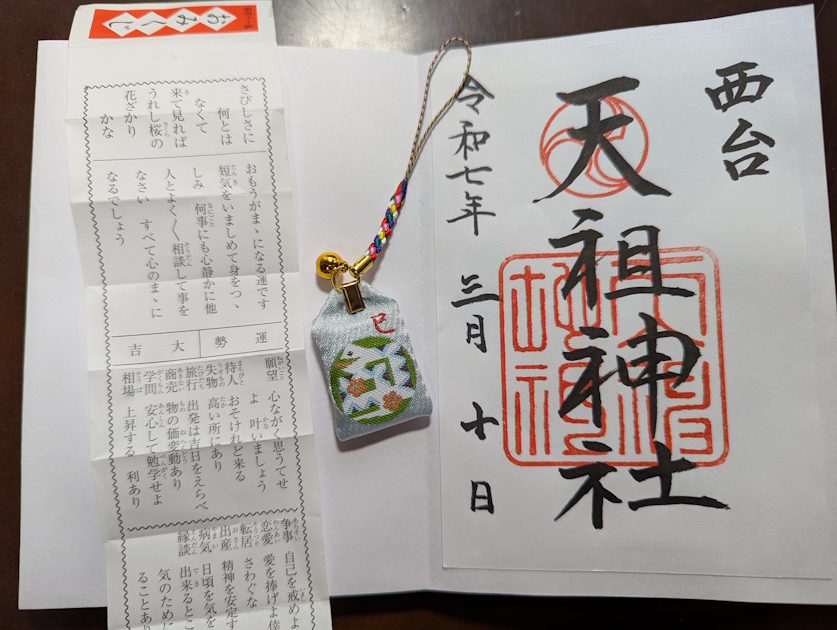 西台
天祖神社
令和七年 三月 十日
巳
おみくじ
さびしさに
何とは
なくて
来て見れば
うれし桜の
花ざかり
かな
おもうがまゝになる運です
短気をいましめて身をつゝ
しみ 何事にも心静かに他
人とよく〱相談して事を
なさい すべて心のまゝに
なるでしょう
運勢 大吉
願望 心ながく思うてせ
よ 叶いましょう
待人 おそけれど来る
失物 高い所にあり
旅行 出発は吉日をえらべ
商売 物の価変動あり
学問 安心して勉学せよ
相場 上昇する 利あり
争事 自己を戒めよ
恋愛 愛を捧げよ倖
転居 さわぐな
出産 精神を安定す
病気 日頃を気を
縁談 出来るとこ
気のために
ることあり